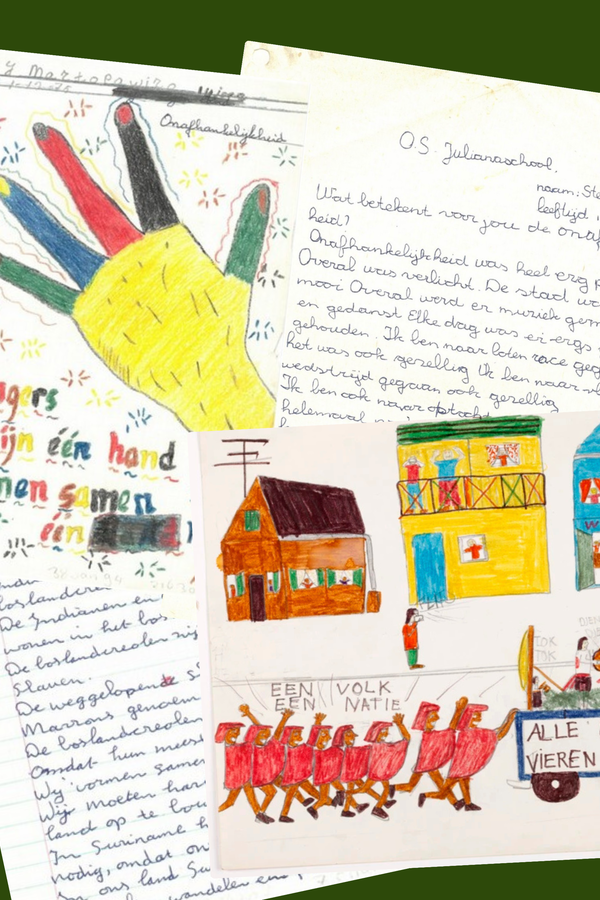 Onafhankelijkheid
ijn één hand
samen
één
O.S. Julianaschool.
naam: Ste
leeftijd
Wat betekent voor jou de onaf
heid?
Onafhankelijkheid was heel erg
Overal was verlicht. De stad
mooi Overal werd er muziek gem
en gedanst Elke dag was er ergs
gehouden. Ik ben naar boten race geg
het was ook gezellig Ik ben naar
wedstrijd gegaan ook gezellig
Ik ben ook naar optocht
helemaal
boslandcreo
De Indianen en
wonen in het bos
De boslandcreolen zij
Slaven.
De weggelopende s
Marrons genoem
De boslandcreolen
Omdat hun meest
Wij vormen samen
Wij moeten har
land op te bou
In Suriname h
nodig, omdat on
ons land Su
wandelen
EEN VOLK
EEN NATIE
TOK
TOK
DIEN
ALLE
VIEREN